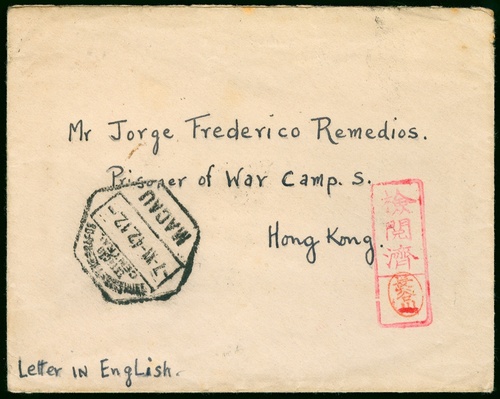 Mr Jorge Frederico Remedios.
Prisoner of War Camp. S.
Hong Kong.
MACAU
檢閱濟
Letter IN English.